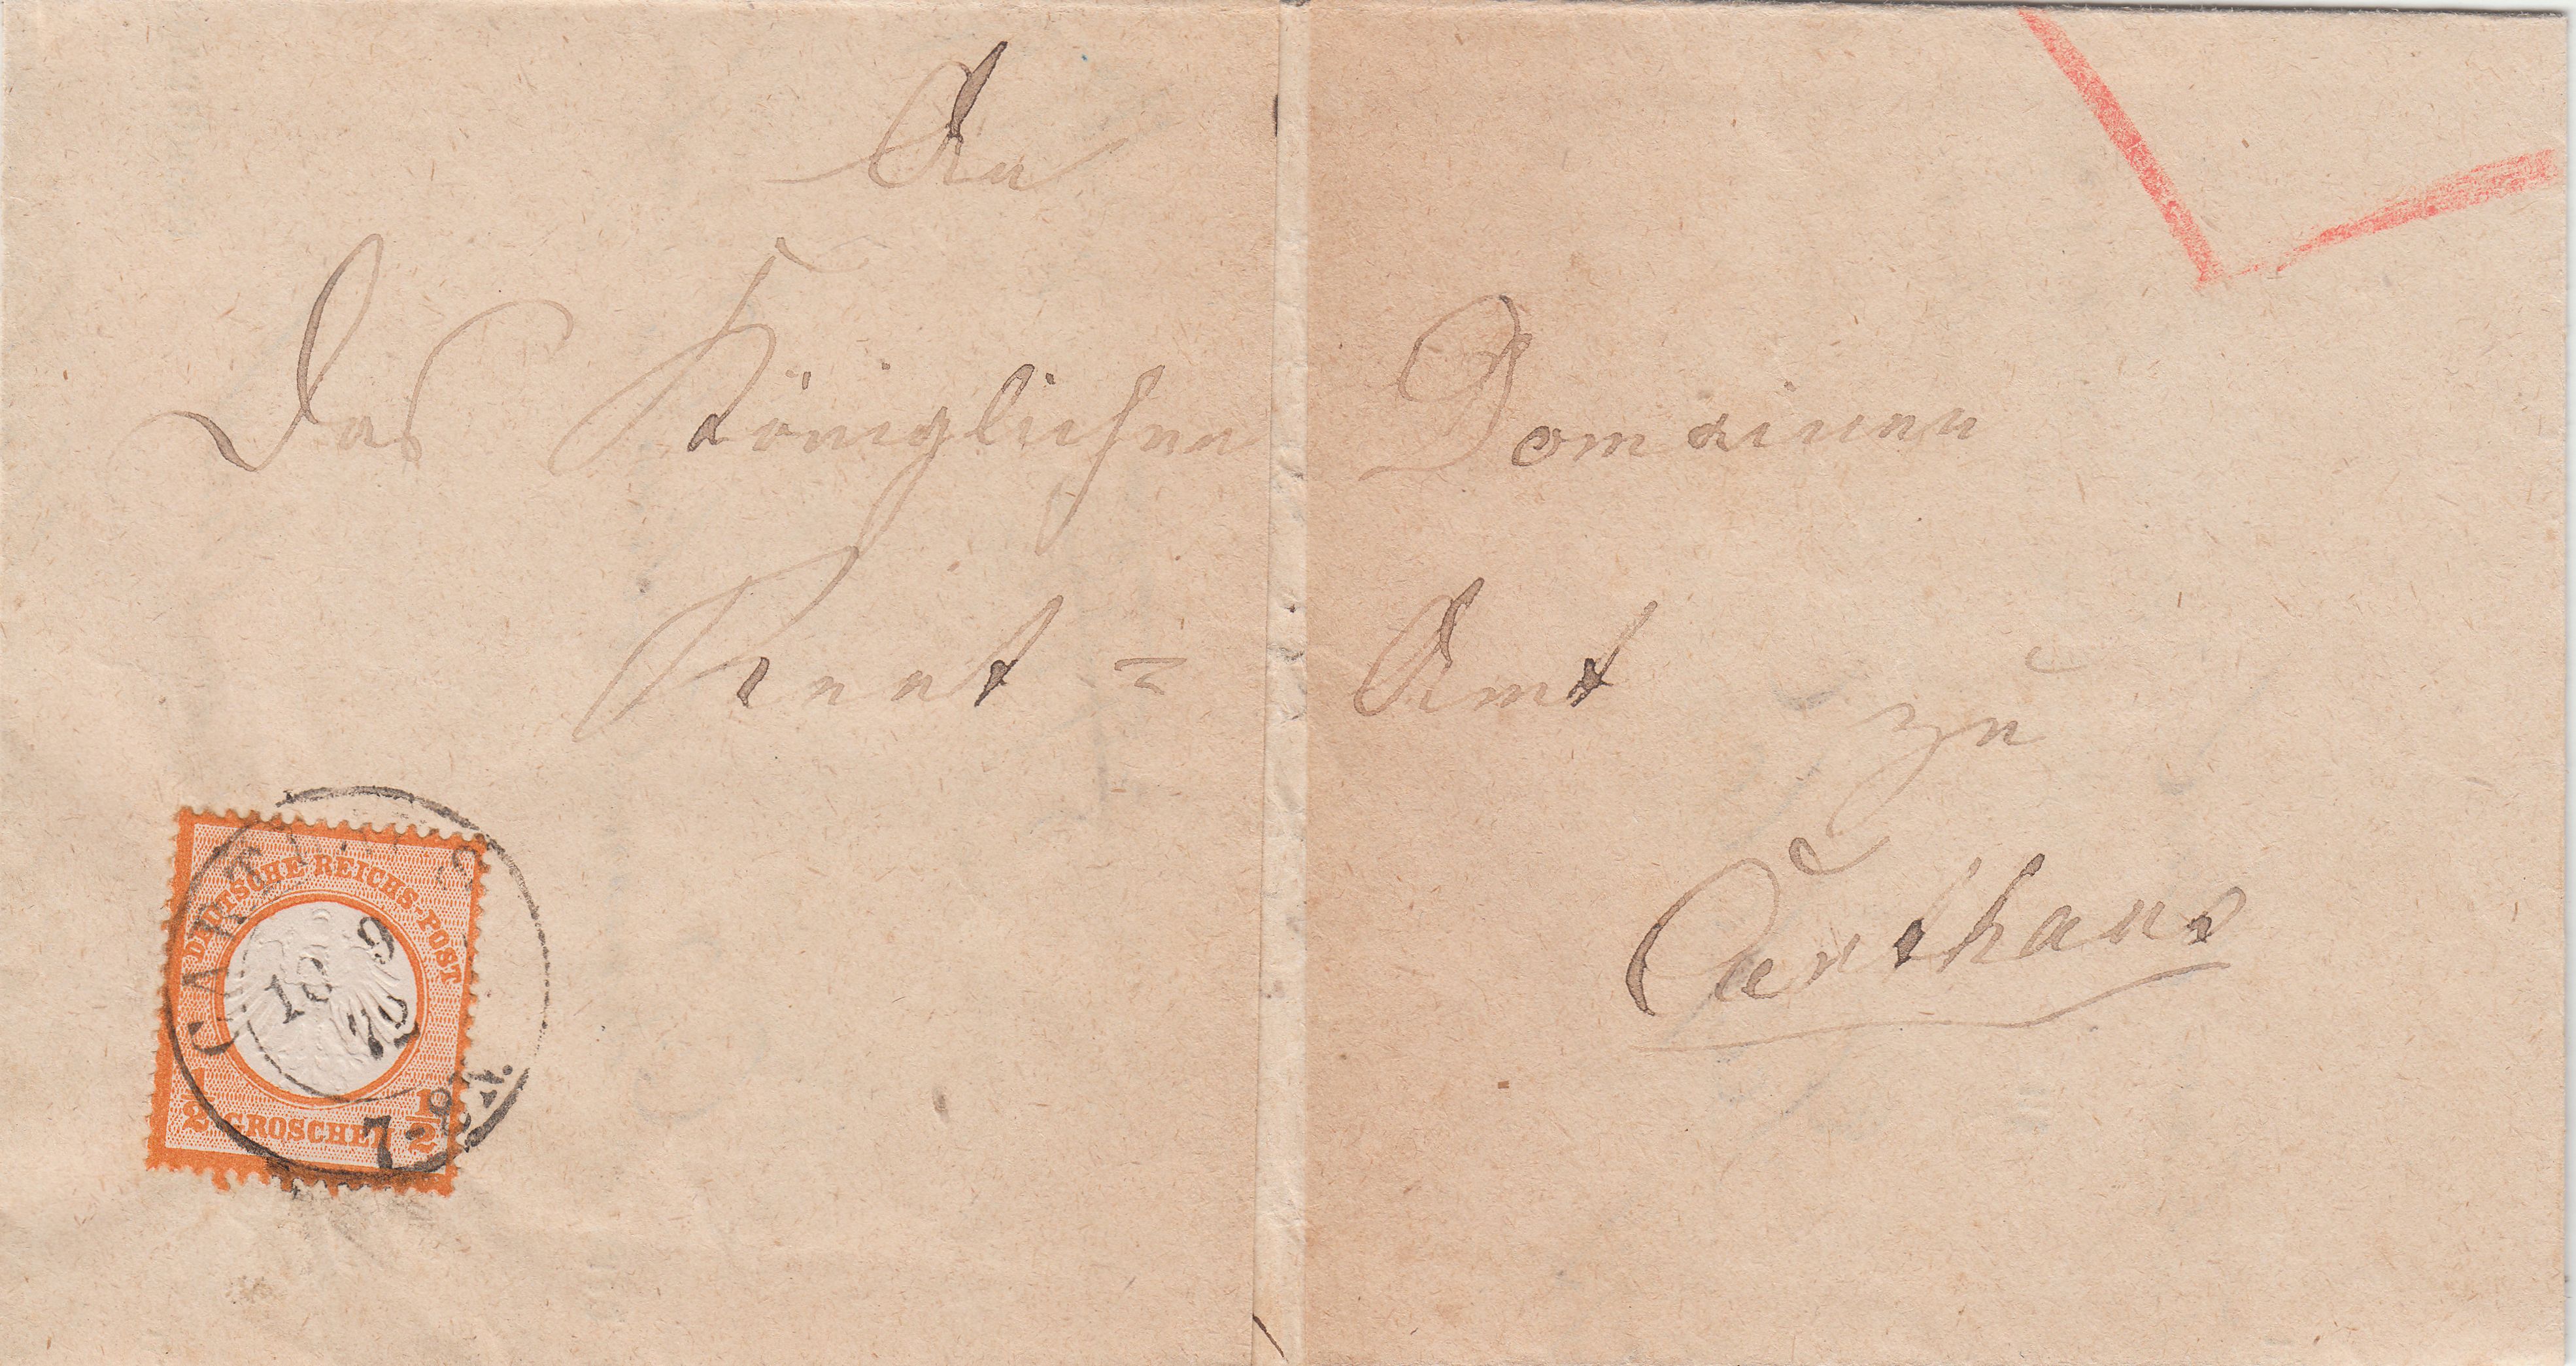 An
Das Königlichen Domainen
Rent = Amt
zu
Carthaus
DEUTSCHE REICHS-POST
1/2 GROSCHEN 1/2
CART
10 9
7-8